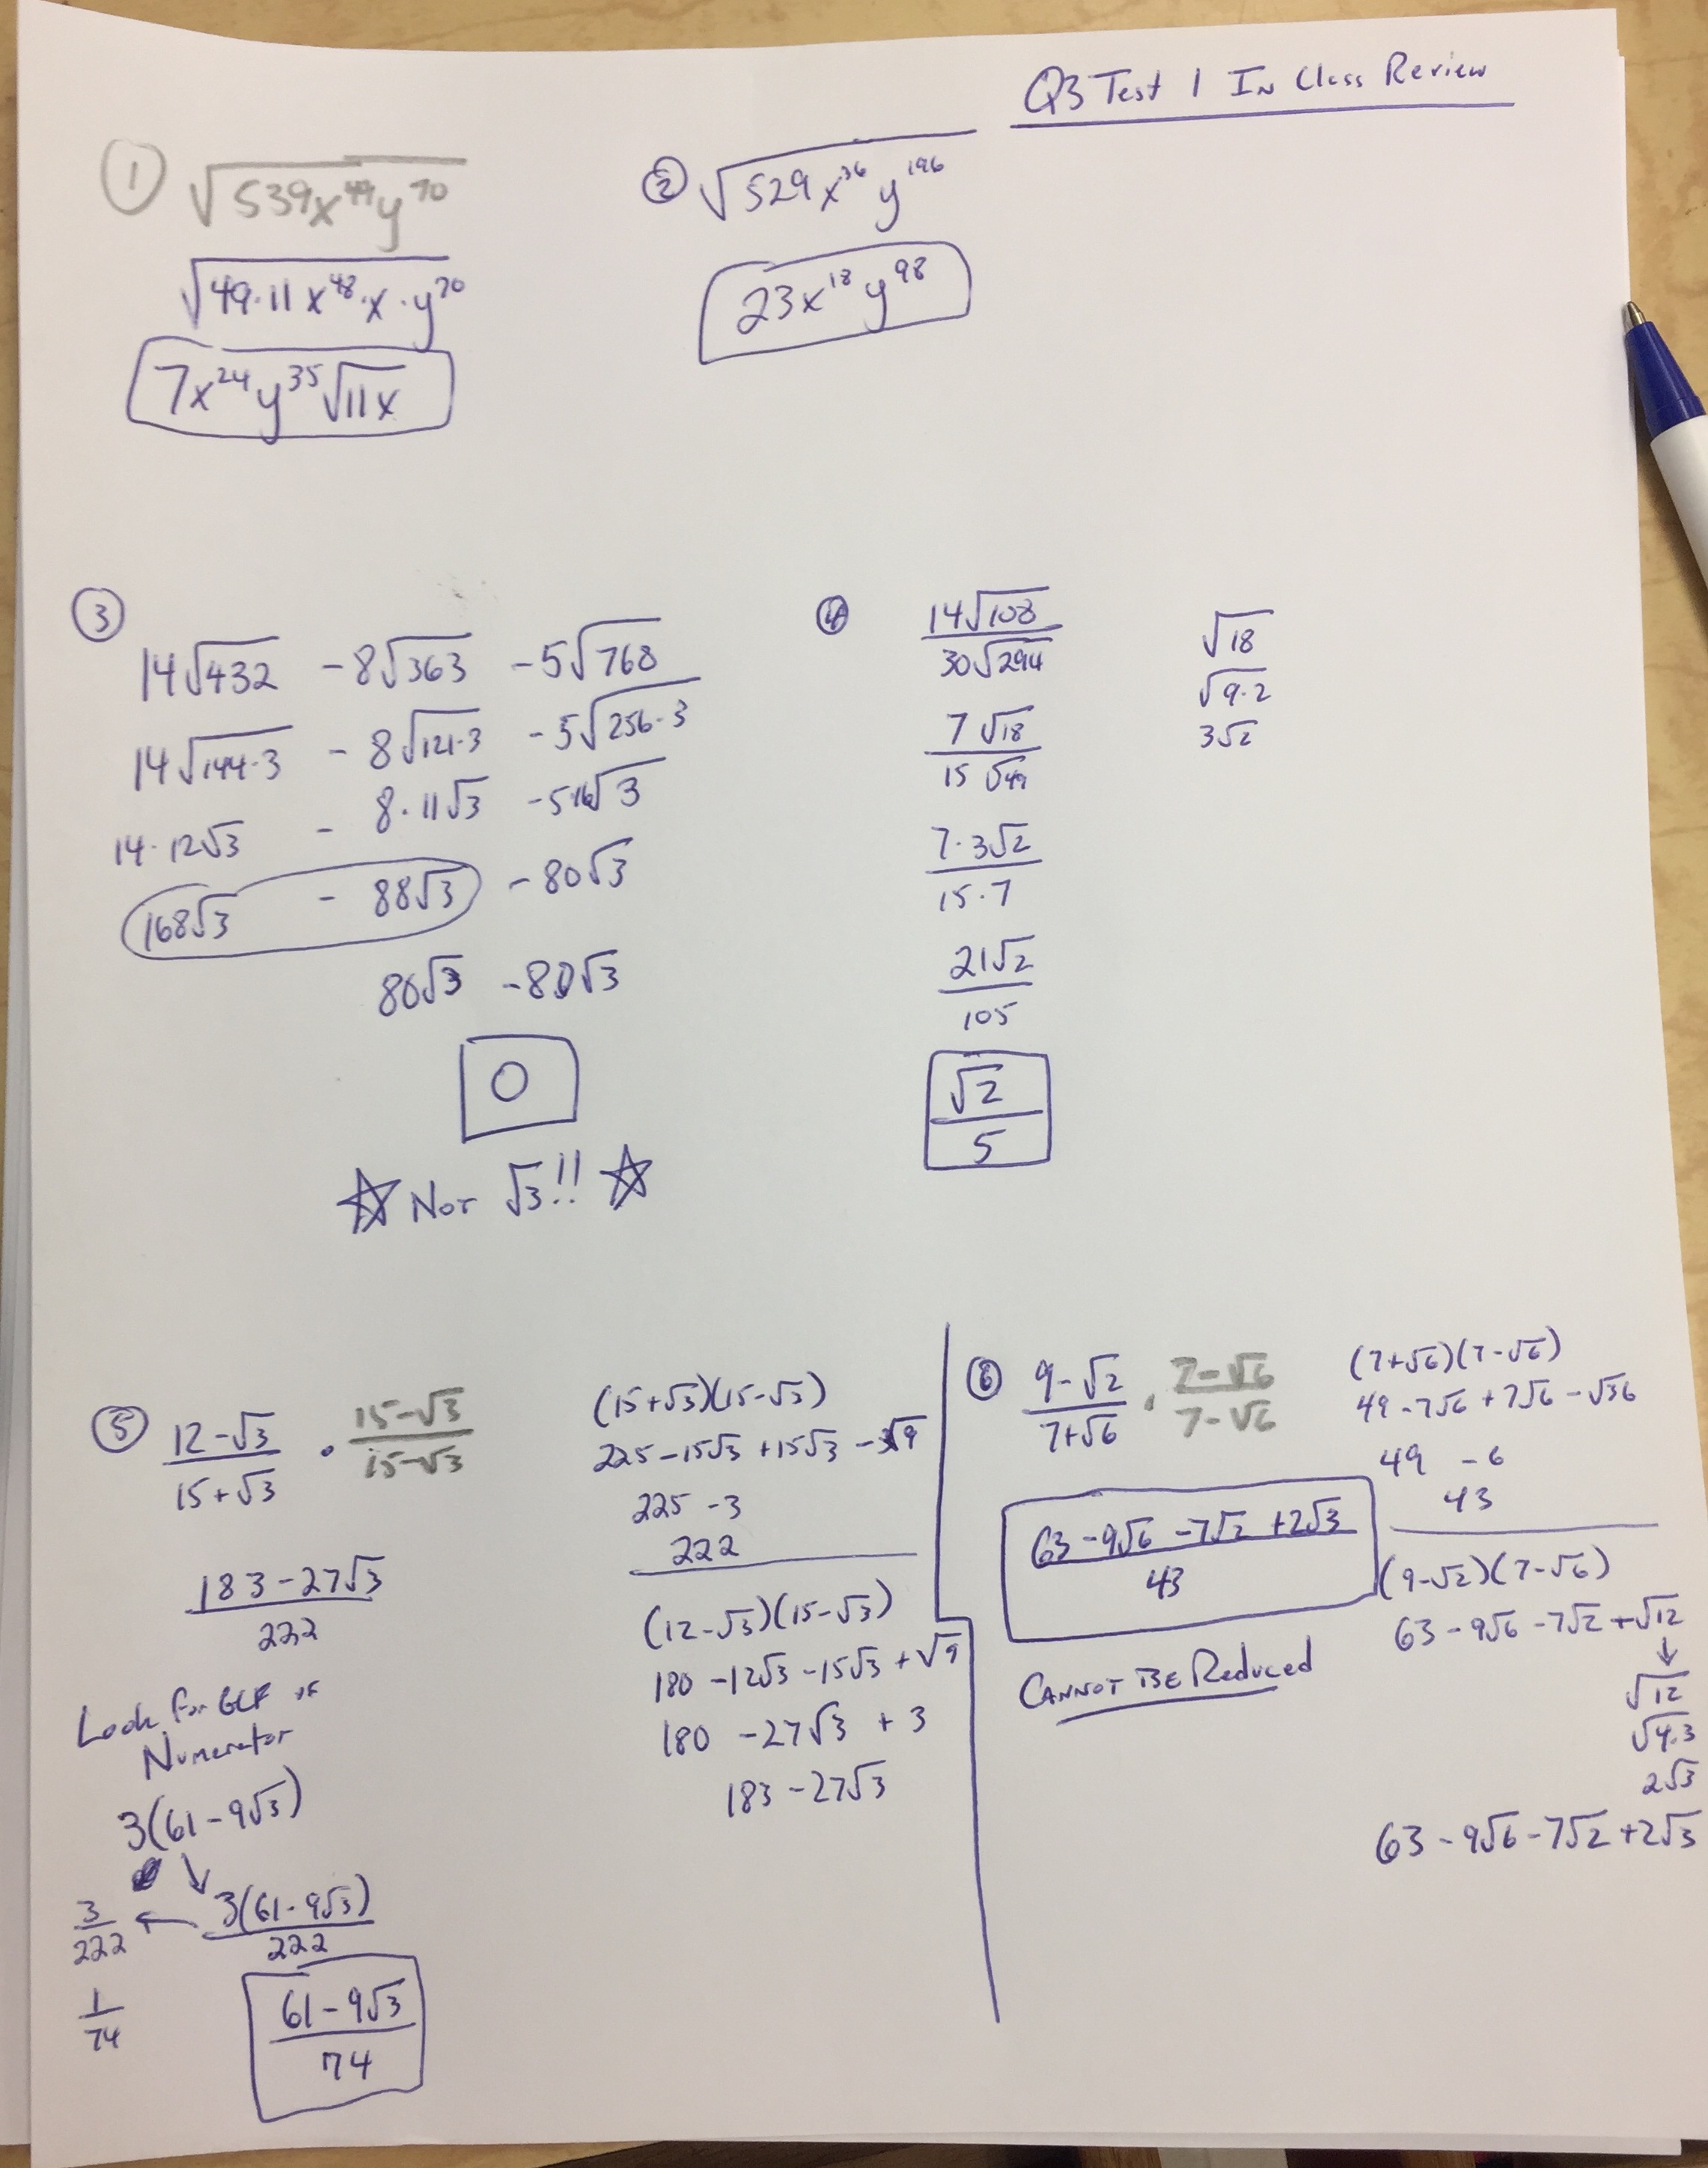 Q3 Test 1 In Class Review
① √539x⁴⁹y⁷⁰
√49·11x⁴⁸·x·y⁷⁰
7x²⁴y³⁵√11x
② √529x³⁶y¹⁹⁶
23x¹⁸y⁹⁸
③
14√432 - 8√363 - 5√768
14√144·3 - 8√121·3 - 5√256·3
14·12√3 - 8·11√3 - 5·16√3
168√3 - 88√3 - 80√3
80√3 - 80√3
0
☆ Not √3!! ☆
④ 14√108 / 30√294
7√18 / 15√49
7·3√2 / 15·7
21√2 / 105
√2 / 5
√18
√9·2
3√2
⑤ 12-√3 / 15+√3 · 15-√3 / 15-√3
183-27√3 / 222
Look for GCF of
Numerator
3(61-9√3)
3(61-9√3) / 222
3/222
1/74
61-9√3 / 74
(15+√3)(15-√3)
225-15√3+15√3-√9
225-3
222
(12-√3)(15-√3)
180-12√3-15√3+√9
180-27√3+3
183-27√3
⑥ 9-√2 / 7+√6 · 7-√6 / 7-√6
63-9√6-7√2+2√3 / 43
Cannot Be Reduced
(7+√6)(7-√6)
49-7√6+7√6-√36
49-6
43
(9-√2)(7-√6)
63-9√6-7√2+√12
√12
√4·3
2√3
63-9√6-7√2+2√3